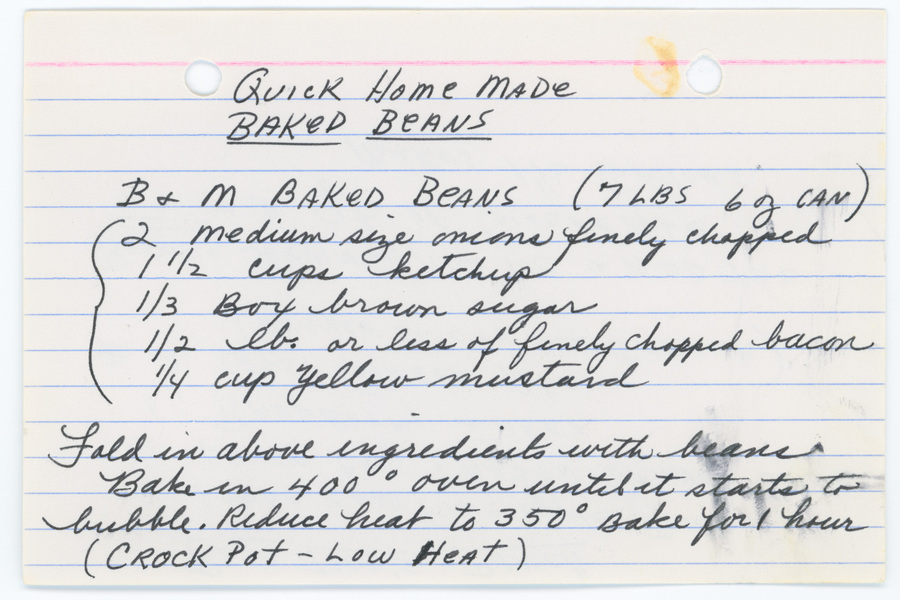 Quick Home Made
Baked Beans
B & M Baked Beans (7 LBS 6 oz can)
2 medium size onions finely chopped
1 1/2 cups ketchup
1/3 Box brown sugar
1/2 lb. or less of finely chopped bacon
1/4 cup yellow mustard
Fold in above ingredients with beans.
Bake in 400° oven until it starts to
bubble. Reduce heat to 350° Bake for 1 hour
(Crock Pot - Low Heat)